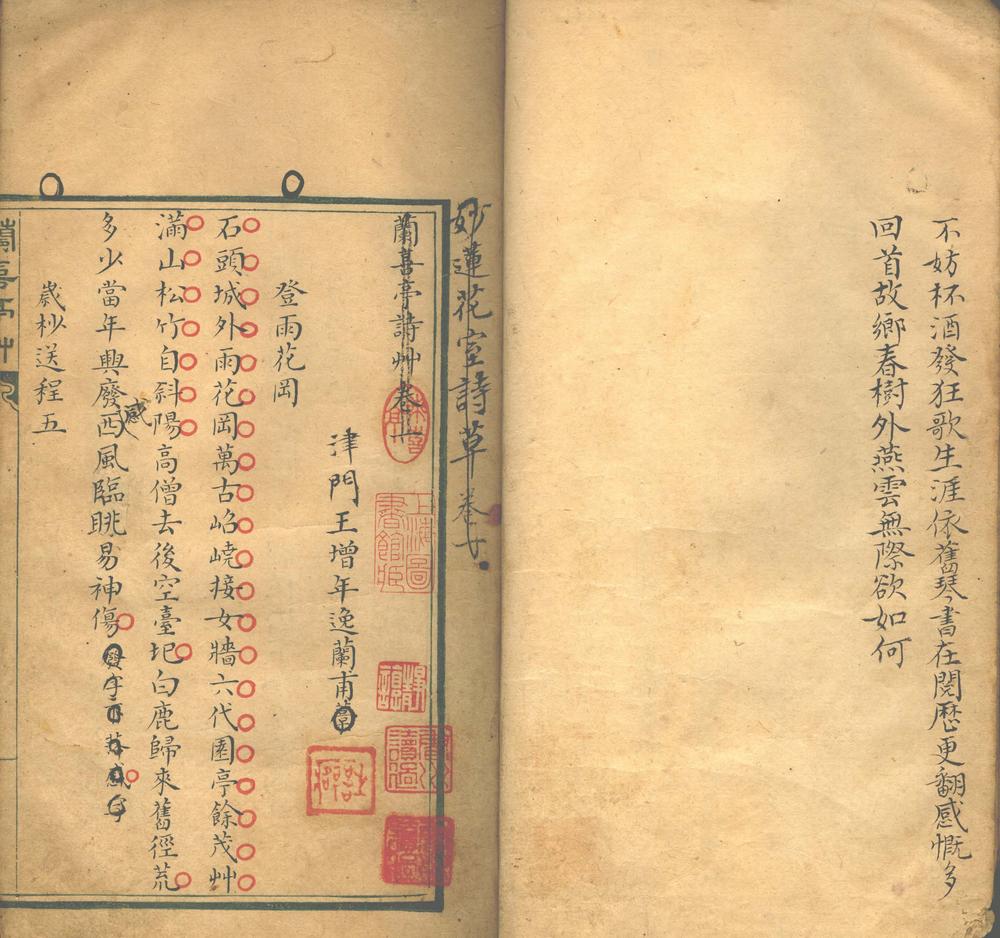 不妨杯酒發狂歌生涯依舊琴書在閱歷更翻感慨多
回首故鄉春樹外燕雲無際欲如何
妙蓮花室詩草卷
蘭喜亭詩艸卷
津門王增年逸蘭甫
登雨花岡
石頭城外雨花岡萬古岧嶢接女牆六代園亭餘茂艸
滿山松竹自斜陽高僧去後空臺圯白鹿歸來舊徑荒
感
多少當年興廢西風臨眺易神傷
歲杪送程五
上海圖書館臧